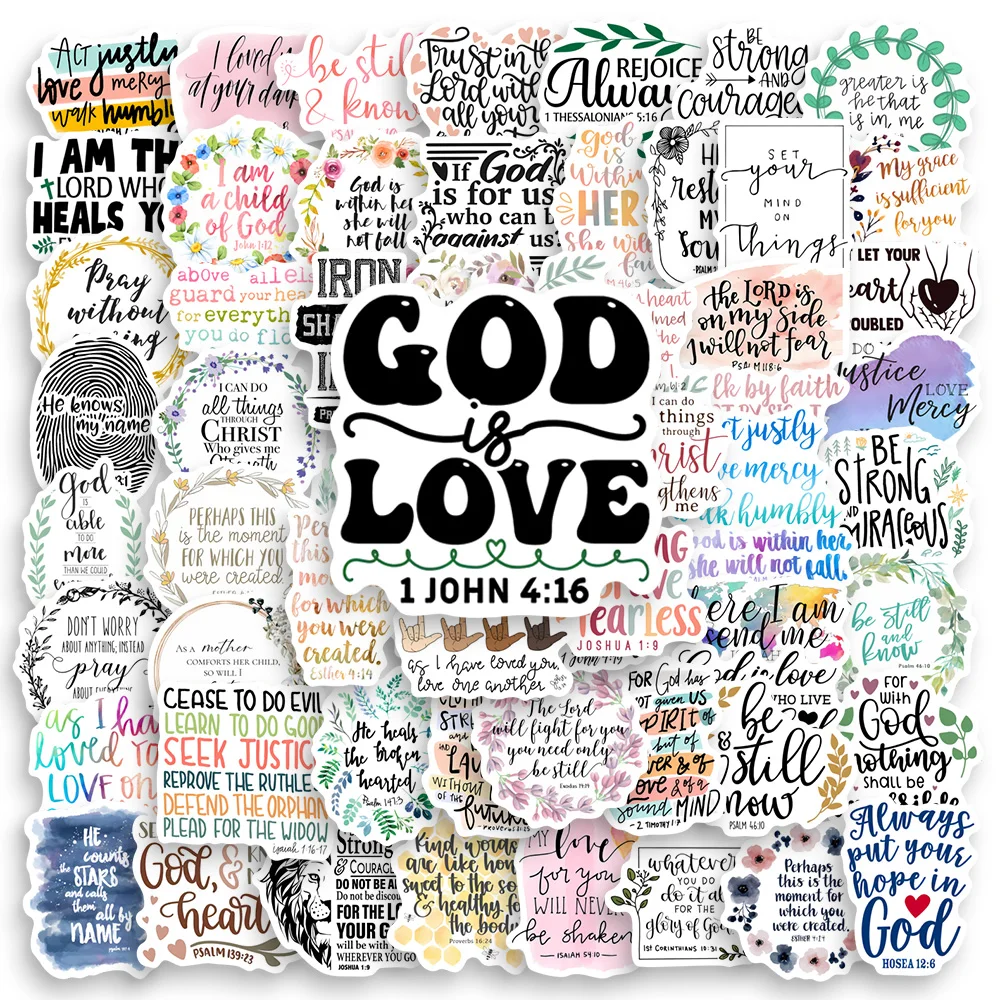 Act justly
love mercy
walk humbly
I loved
at your
be still
& know
PSALM
Trust in the
Lord with
all your
REJOICE
Always
1 THESSALONIANS 5:16
BE
strong
AND
Courageous
greater is
he that
is in me
I AM TH
LORD WHO
HEALS YO
I am
a child
of God
John 1:12
God is
within her
she will
not fall
If God
is for us
who can b
against us
god
is
within
HER
she will
fail
M 46:5
rest
MY
Soul
PSALM
SET
your
MIND
ON
Things
My grace
is sufficient
for you
Pray
without
above all els
guard your hea
for everyth
you do flo
IRON
SHA
GOD
is
LOVE
1 JOHN 4:16
heart
the LORD is
on my side
I will not fear
PSALM 118:6
LET YOUR
heart
OUBLED
He knows
my name
I CAN DO
all things
THROUGH
CHRIST
Who gives me
i can do
things
through
rist
gthens
me
lk by faith
t justly
ve mercy
k humbly
DO
Justice
LOVE
Mercy
BE
STRONG
AND
COURAGEOUS
god
IS
able
TO DO
more
THAN WE COULD
PERHAPS THIS
is the moment
FOR WHICH YOU
were created.
Per
this
mo
for which
you were
created.
Esther 4:14
God is within her,
she will not fall.
DON'T WORRY
ABOUT ANYTHING, INSTEAD
pray
ABOUT
AS A mother
COMFORTS HER CHILD,
SO WILL I
as I have loved you,
love one another
fearless
JOSHUA 1:9
ere I am
end me
be still
and
know
Psalm 46:10
as I ha
loved yo
LOVE on
CEASE TO DO EVIL
LEARN TO DO GOO
SEEK JUSTIC
REPROVE THE RUTHLE
DEFEND THE ORPHAN
PLEAD FOR THE WIDOW
isaiah 1:16-17
He heals
the broken
hearted
Psalm 147:3
WITHOUT
OF THE
future
PROVERBS 31:25
The Lord
will fight for you
you need only
be still
Exodus 14:14
FOR God has
not given US
SPIRIT of
but of
love & of a
sound MIND
2 TIMOTHY 1:7
be
still
now
PSALM 46:10
WHO LIVE
FOR
with
God
nothing
shall be
HE
counts
the STARS
and calls
them
all by
NAME
God, &
heart
PSALM 139:23
Strong
& COURAG
DO NOT BE A
Do not be discou
FOR THE LO
YOUR G
will be with
WHEREVER YOU GO
JOSHUA 1:9
Kind words
are like hon
sweet to the so
& healthy fo
the body
Proverbs 16:24
MY love
for you
WILL NEVER
be shaken
ISAIAH 54:10
whatever
YOU DO
do it all
FOR THE
glory of God
1ST CORINTHIANS 10:31
Perhaps
this is the
moment for
which you
were created.
ESTHER 4:14
Always
put your
hope in
God
HOSEA 12:6